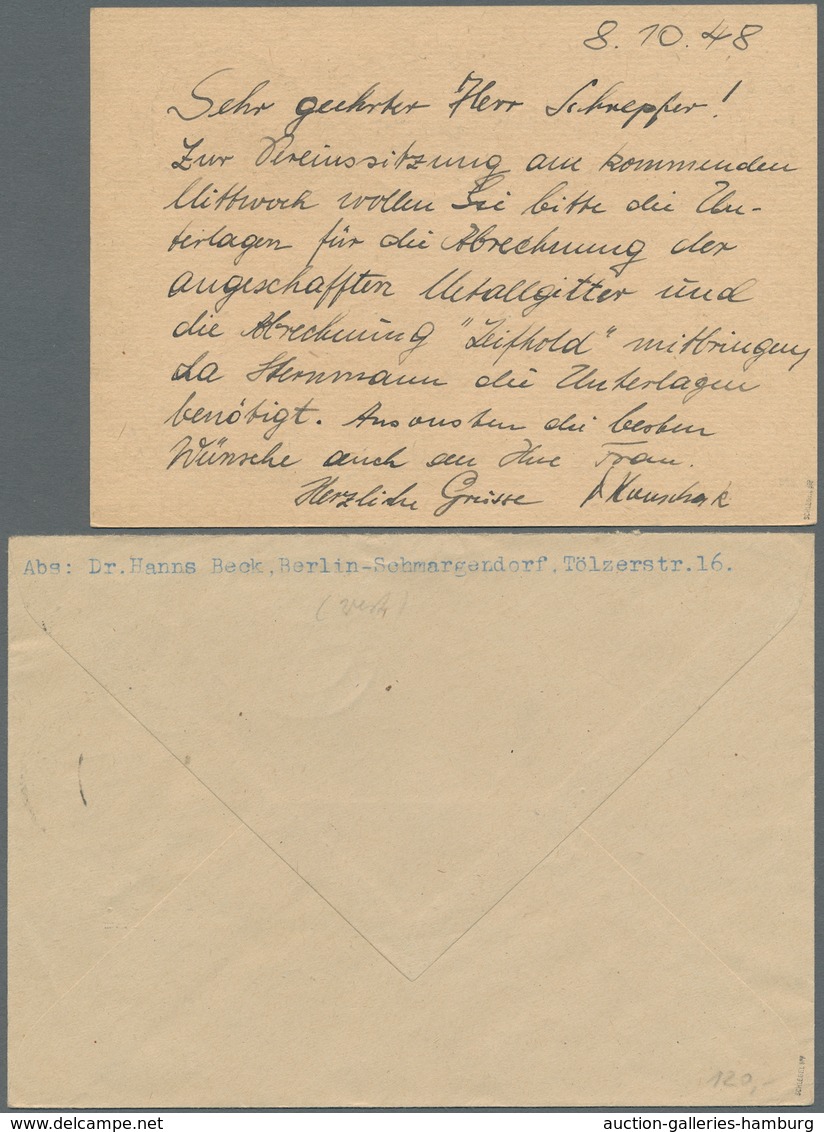 8. 10. 48
Sehr geehrter Herr Schrepfer!
Zur Vereinssitzung am kommenden
Mittwoch wollen Sie bitte die Un-
terlagen für die Abrechnung der
angeschafften Metallgitter und
die Abrechnung "Leifhold" mitbringen,
da Herrmann die Unterlagen
benötigt. Ansonsten die besten
Wünsche auch an Ihre Frau.
Herzliche Grüsse
Abs: Dr.Hanns Beck,Berlin-Schmargendorf,Tölzerstr.16.
(West)
120,-
auction-galleries-hamburg